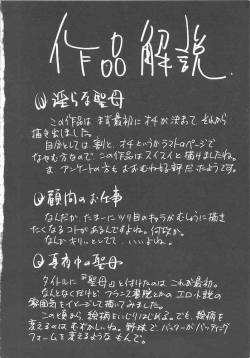 作品解説.
淫らな聖母
この作品はまず最初にオチが決まって、それから
描き出しました。
自分としては割と、オチというかラストのページで
なやむ方なので、この作品はスイスイと描けましたね。
ま、アンケートの方もおおむね好評だったようです。
顧問のお仕事
なんだか、たまーにツリ目のキャラがむしょうに描き
たくなるコトがあるんですよね。何故か。
なんか キリッとしてて…いいよね。
真夜中の聖母
タイトルに『聖母』と付けたのは これが最初。
なんとなくだけど、フランス書院とかの エロ小説の
雰囲気をイメージして描いてみました。
この頃から、絵柄をいじりはじめる。でも、絵柄を
変えるのは むずかしいね。野球で、バッターがバッティング
フォームを変えるような もんで。